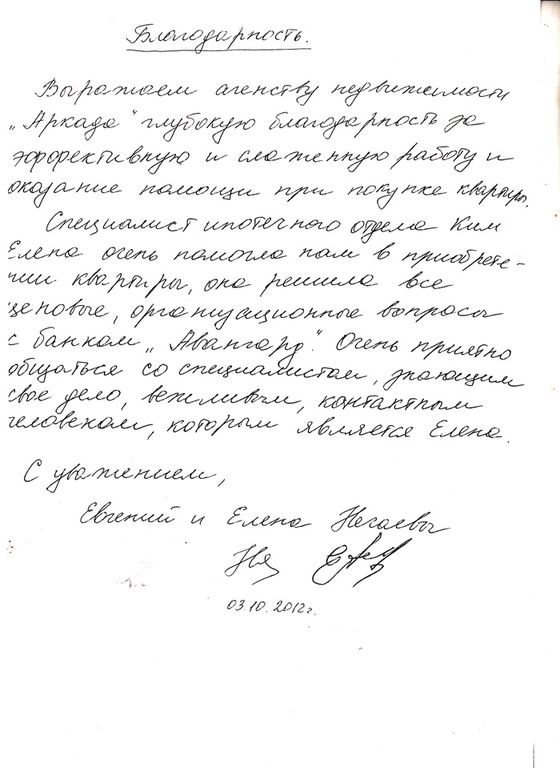 Благодарность.
Выражаем агенству недвижимости
„Аркада“ глубокую благодарность за
эффективную и слаженную работу и
оказание помощи при покупке квартиры.
Специалист ипотечного отдела Ким
Елена очень помогла нам в приобрете-
нии квартиры, она решила все
ценовые, организационные вопросы
с банком „Авангард“. Очень приятно
общаться со специалистом, знающим
свое дело, вежливым, контактным
человеком, которым является Елена.
С уважением,
Евгений и Елена Негаевы
03.10.2012г.